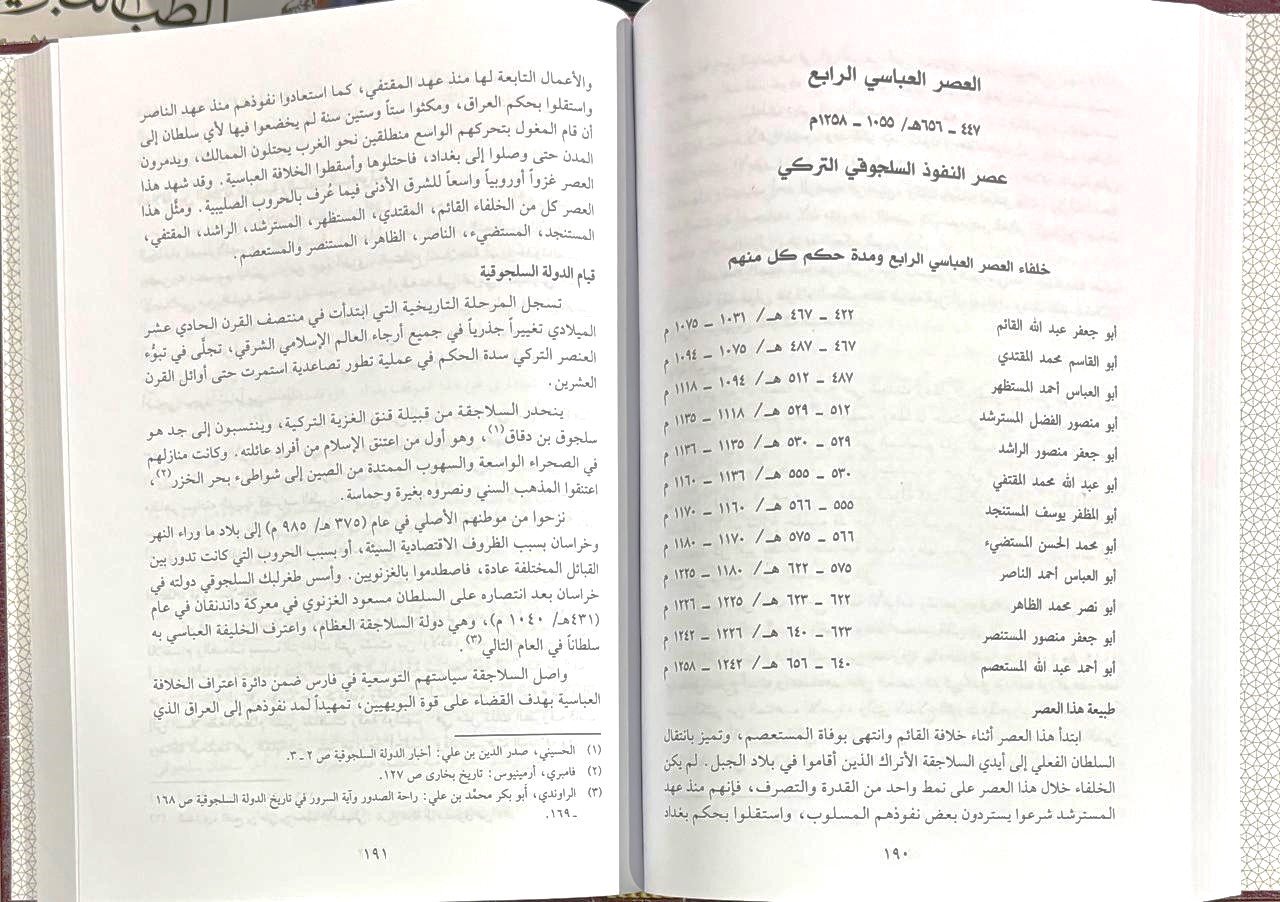 العصر العباسي الرابع
٤٤٧ ـ ٦٥٦هـ/ ١٠٥٥ ـ ١٢٥٨م
عصر النفوذ السلجوقي التركي
خلفاء العصر العباسي الرابع ومدة حكم كل منهم
أبو جعفر عبد الله القائم ٤٢٢ ـ ٤٦٧ هـ/ ١٠٣١ ـ ١٠٧٥ م
أبو القاسم محمد المقتدي ٤٦٧ ـ ٤٨٧ هـ/ ١٠٧٥ ـ ١٠٩٤ م
أبو العباس أحمد المستظهر ٤٨٧ ـ ٥١٢ هـ/ ١٠٩٤ ـ ١١١٨ م
أبو منصور الفضل المسترشد ٥١٢ ـ ٥٢٩ هـ/ ١١١٨ ـ ١١٣٥ م
أبو جعفر منصور الراشد ٥٢٩ ـ ٥٣٠ هـ/ ١١٣٥ ـ ١١٣٦ م
أبو عبد الله محمد المقتفي ٥٣٠ ـ ٥٥٥ هـ/ ١١٣٦ ـ ١١٦٠ م
أبو المظفر يوسف المستنجد ٥٥٥ ـ ٥٦٦ هـ/ ١١٦٠ ـ ١١٧٠ م
أبو محمد الحسن المستضيء ٥٦٦ ـ ٥٧٥ هـ/ ١١٧٠ ـ ١١٨٠ م
أبو العباس أحمد الناصر ٥٧٥ ـ ٦٢٢ هـ/ ١١٨٠ ـ ١٢٢٥ م
أبو نصر محمد الظاهر ٦٢٢ ـ ٦٢٣ هـ/ ١٢٢٥ ـ ١٢٢٦ م
أبو جعفر منصور المستنصر ٦٢٣ ـ ٦٤٠ هـ/ ١٢٢٦ ـ ١٢٤٢ م
أبو أحمد عبد الله المستعصم ٦٤٠ ـ ٦٥٦ هـ/ ١٢٤٢ ـ ١٢٥٨ م
طبيعة هذا العصر
ابتدأ هذا العصر أثناء خلافة القائم وانتهى بوفاة المستعصم، وتميز بانتقال
السلطان الفعلي إلى أيدي السلاجقة الأتراك الذين أقاموا في بلاد الجبل. لم يكن
الخلفاء خلال هذا العصر على نمط واحد من القدرة والتصرف، فإنهم منذ عهد
المسترشد شرعوا يستردون بعض نفوذهم المسلوب، واستقلوا بحكم بغداد
١٩٠
والأعمال التابعة لها منذ عهد المقتفي، كما استعادوا نفوذهم منذ عهد الناصر
واستقلوا بحكم العراق، ومكثوا ستاً وستين سنة لم يخضعوا فيها لأي سلطان إلى
أن قام المغول بتحركهم الواسع منطلقين نحو الغرب يحتلون الممالك، ويدمرون
المدن حتى وصلوا إلى بغداد، فاحتلوها وأسقطوا الخلافة العباسية. وقد شهد هذا
العصر غزواً أوروبياً واسعاً للشرق الأدنى فيما عُرف بالحروب الصليبية. ومثَّل هذا
العصر كل من الخلفاء القائم، المقتدي، المستظهر، المسترشد، الراشد، المقتفي،
المستنجد، المستضيء، الناصر، الظاهر، المستنصر والمستعصم.
قيام الدولة السلجوقية
تسجل المرحلة التاريخية التي ابتدأت في منتصف القرن الحادي عشر
الميلادي تغييراً جذرياً في جميع أرجاء العالم الإسلامي الشرقي، تجلَّى في تبوُّء
العنصر التركي سدة الحكم في عملية تطور تصاعدية استمرت حتى أوائل القرن
العشرين.
ينحدر السلاجقة من قبيلة قنق الغزية التركية، وينتسبون إلى جد هو
سلجوق بن دقاق(١)، وهو أول من اعتنق الإسلام من أفراد عائلته. وكانت منازلهم
في الصحراء الواسعة والسهوب الممتدة من الصين إلى شواطىء بحر الخزر(٢)،
اعتنقوا المذهب السني ونصروه بغيرة وحماسة.
نزحوا من موطنهم الأصلي في عام (٣٧٥ هـ/ ٩٨٥ م) إلى بلاد ما وراء النهر
وخراسان بسبب الظروف الاقتصادية السيئة، أو بسبب الحروب التي كانت تدور بين
القبائل المختلفة عادة، فاصطدموا بالغزنويين. وأسس طغرلبك السلجوقي دولته في
خراسان بعد انتصاره على السلطان مسعود الغزنوي في معركة داندنقان في عام
(٤٣١هـ/ ١٠٤٠ م)، وهي دولة السلاجقة العظام، واعترف الخليفة العباسي به
سلطاناً في العام التالي(٣).
واصل السلاجقة سياستهم التوسعية في فارس ضمن دائرة اعتراف الخلافة
العباسية بهدف القضاء على قوة البويهيين، تمهيداً لمد نفوذهم إلى العراق الذي
(١) الحسيني، صدر الدين بن علي: أخبار الدولة السلجوقية ص ٢ـ٣.
(٢) فامبري، أرمينيوس: تاريخ بخارى ص ١٢٧.
(٣) الراوندي، أبو بكر محمَّد بن علي: راحة الصدور وآية السرور في تاريخ الدولة السلجوقية ص ١٦٨
ـ ١٦٩.
١٩١